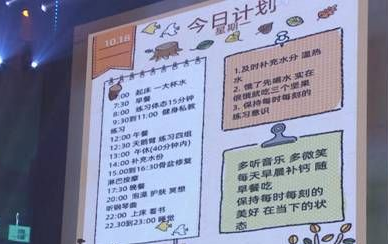 今日计划
星期一
10.18
6:00 起床 一大杯水
7:30 早餐
8:00 练习体态15分钟
9:30到11:00 健身私教
练习
12:00 午餐
12:30 天鹅臂 练习四组
13:00 午休(40分钟内)
14:00 补充水份
15.00到16:30骨盆修复
淋巴按摩
17:30 晚餐
20:00 泡澡 护肤 冥想
听钢琴曲
22:00 上床 看书
22.30到23:00 睡觉
1.及时补充水分 温热
水
2.饿了先喝水 实在
很饿就吃三个坚果
3.保持每时每刻的
练习意识
多听音乐 多微笑
每天早晨补钙 随
早餐吃
保持每时每刻的
美好 在当下的状
态